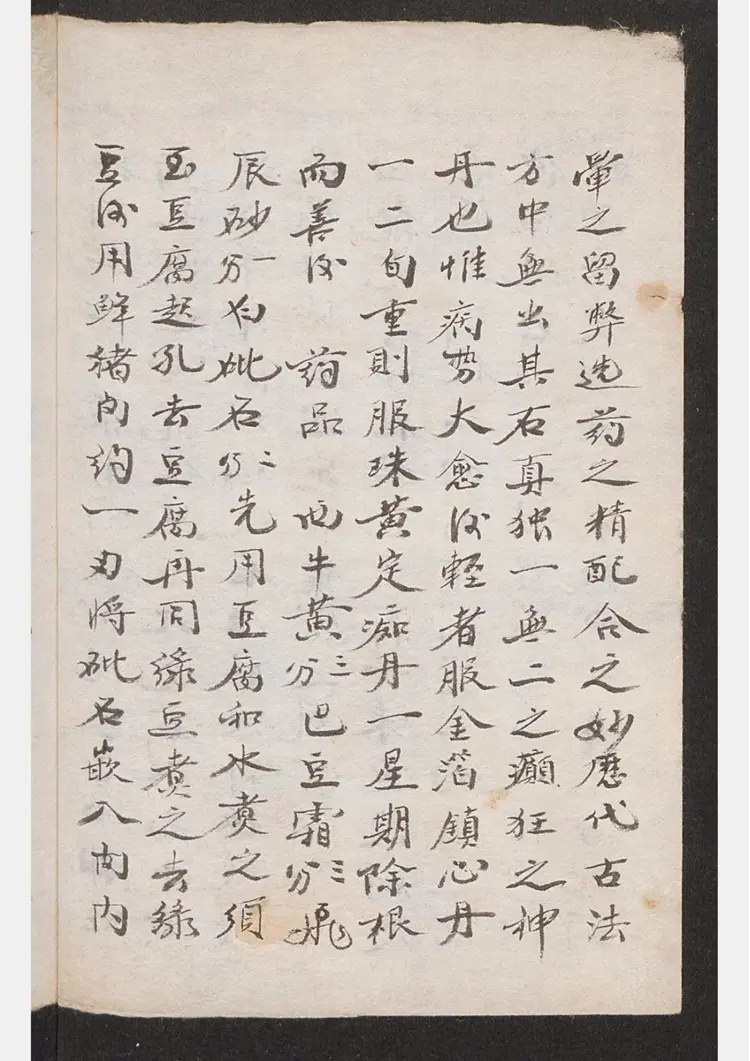 暈之留弊选药之精配合之妙歷代古法
方中無出其右真独一無二之癲狂之神
丹也惟病势大愈後輕者服金箔鎮心丹
一二旬重則服珠黄定痴丹一星期除根
而善後 药品 西牛黄三分巴豆霜三分飛
辰砂一分白砒石二分先用豆腐和水煮之須
玉豆腐起孔去豆腐再同綠豆煮之去綠
豆後用鲜猪肉約一刃将砒石嵌入肉内